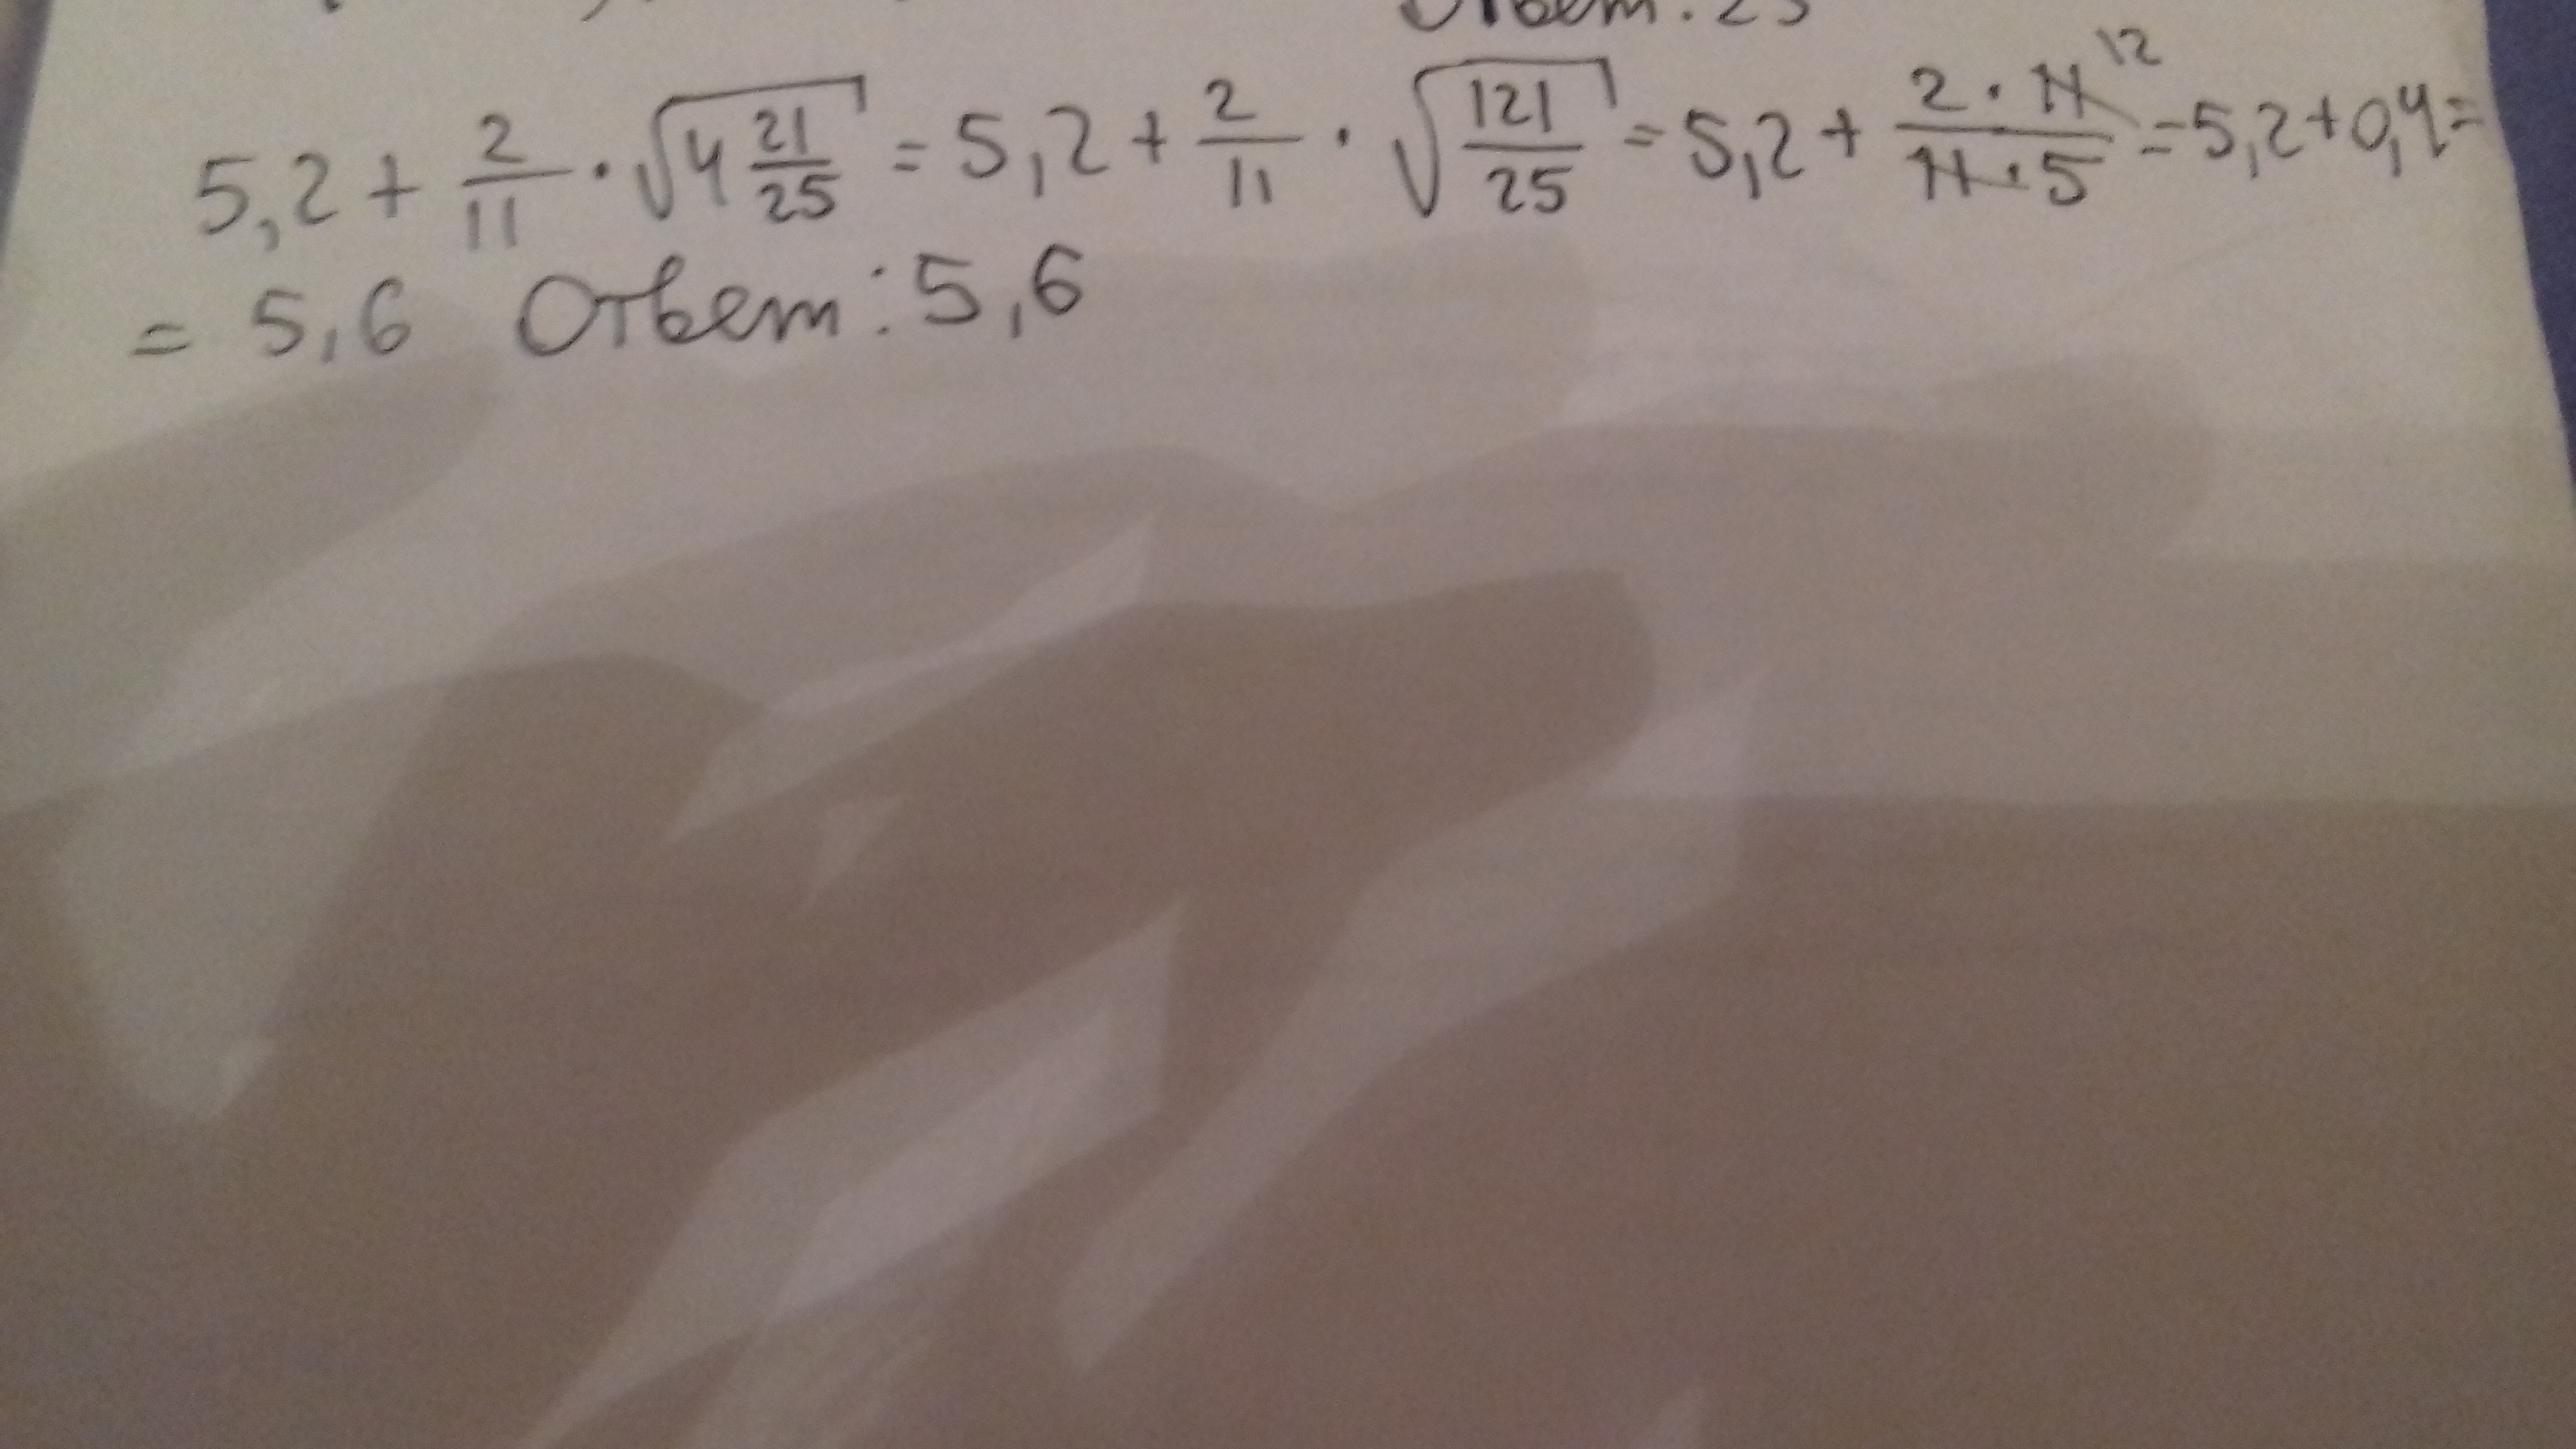 Ответ: 25
5,2 + 2/11 · √(4 21/25) = 5,2 + 2/11 · √(121/25) = 5,2 + (2 · 11 12)/(11 · 5) = 5,2 + 0,4 =
= 5,6 Ответ: 5,6